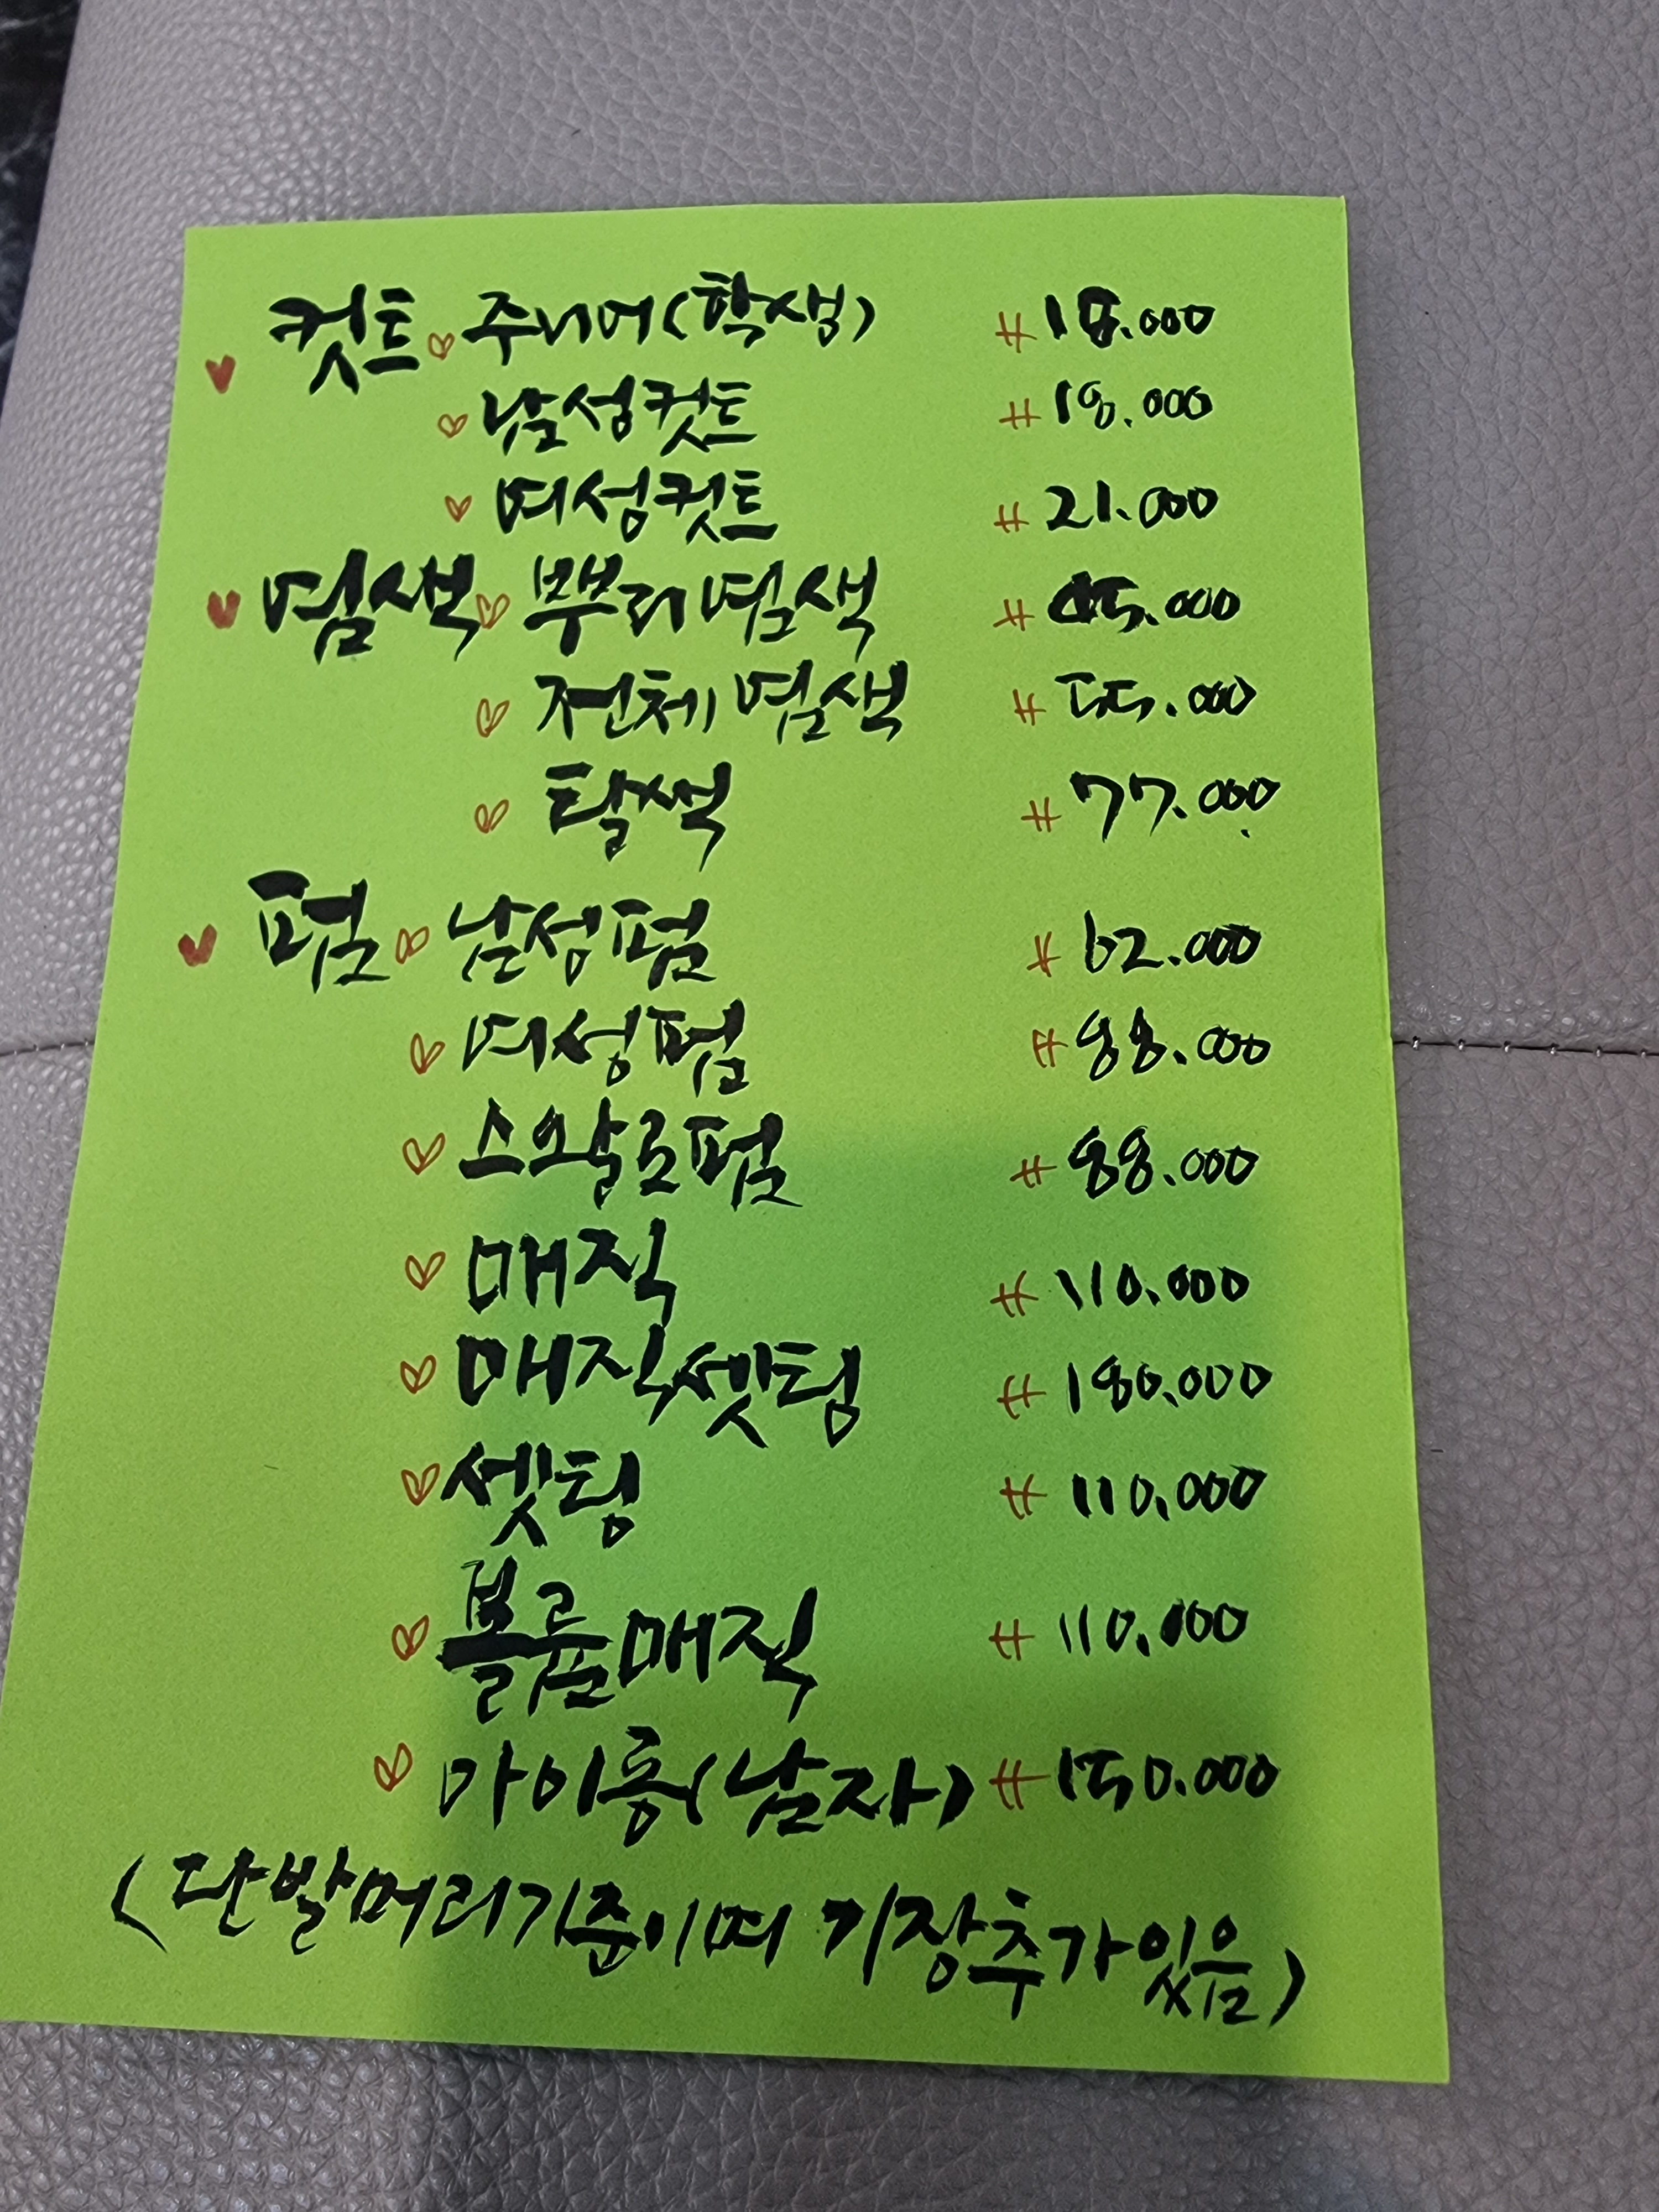 컷트 주니어(학생)
남성컷트 ₩18.000
여성컷트 ₩21.000
염색 뿌리염색 ₩45.000
전체염색 ₩55.000
탈색 ₩77.000
펌 남성펌 ₩62.000
여성펌 ₩88.000
스왈로펌 ₩88.000
매직 ₩110.000
매직셋팅 ₩180.000
셋팅 ₩110.000
볼륨매직 ₩110.000
아이롱(남자) ₩150.000
(단발머리기준이며 기장추가있음)